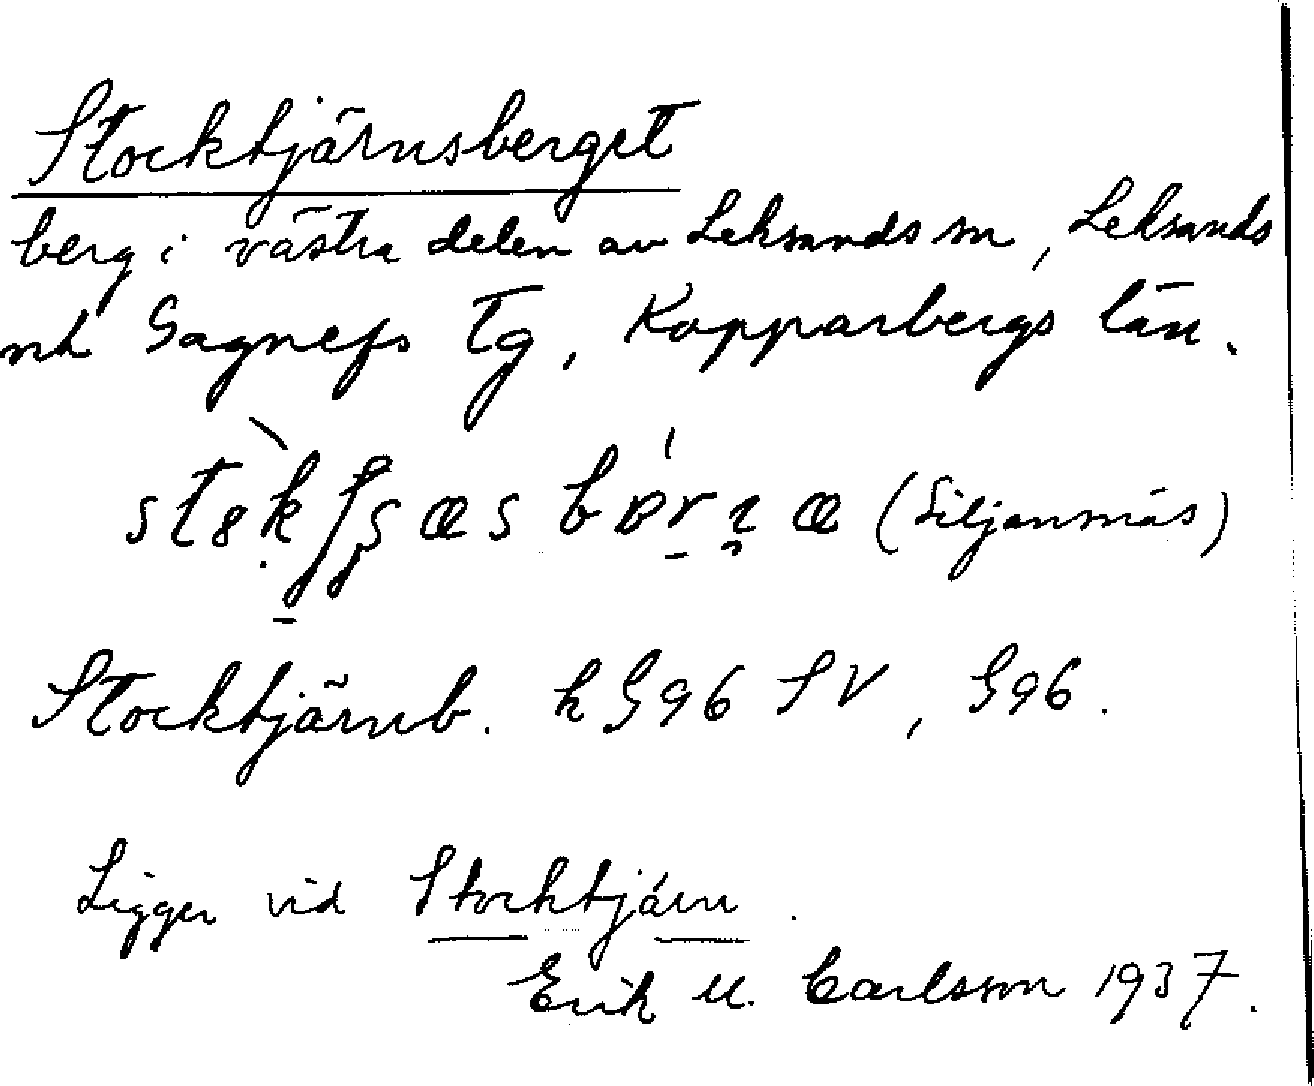 Stocktjärnsberget
berg i västra delen av Leksands sn, Leksands
och Gagnefs tg, Kopparbergs län.
(Siljansnäs)
Stocktjärnb. h G96 SV, G96.
Ligger vid Stocktjärn.
Erik M. Carlsson 1937.